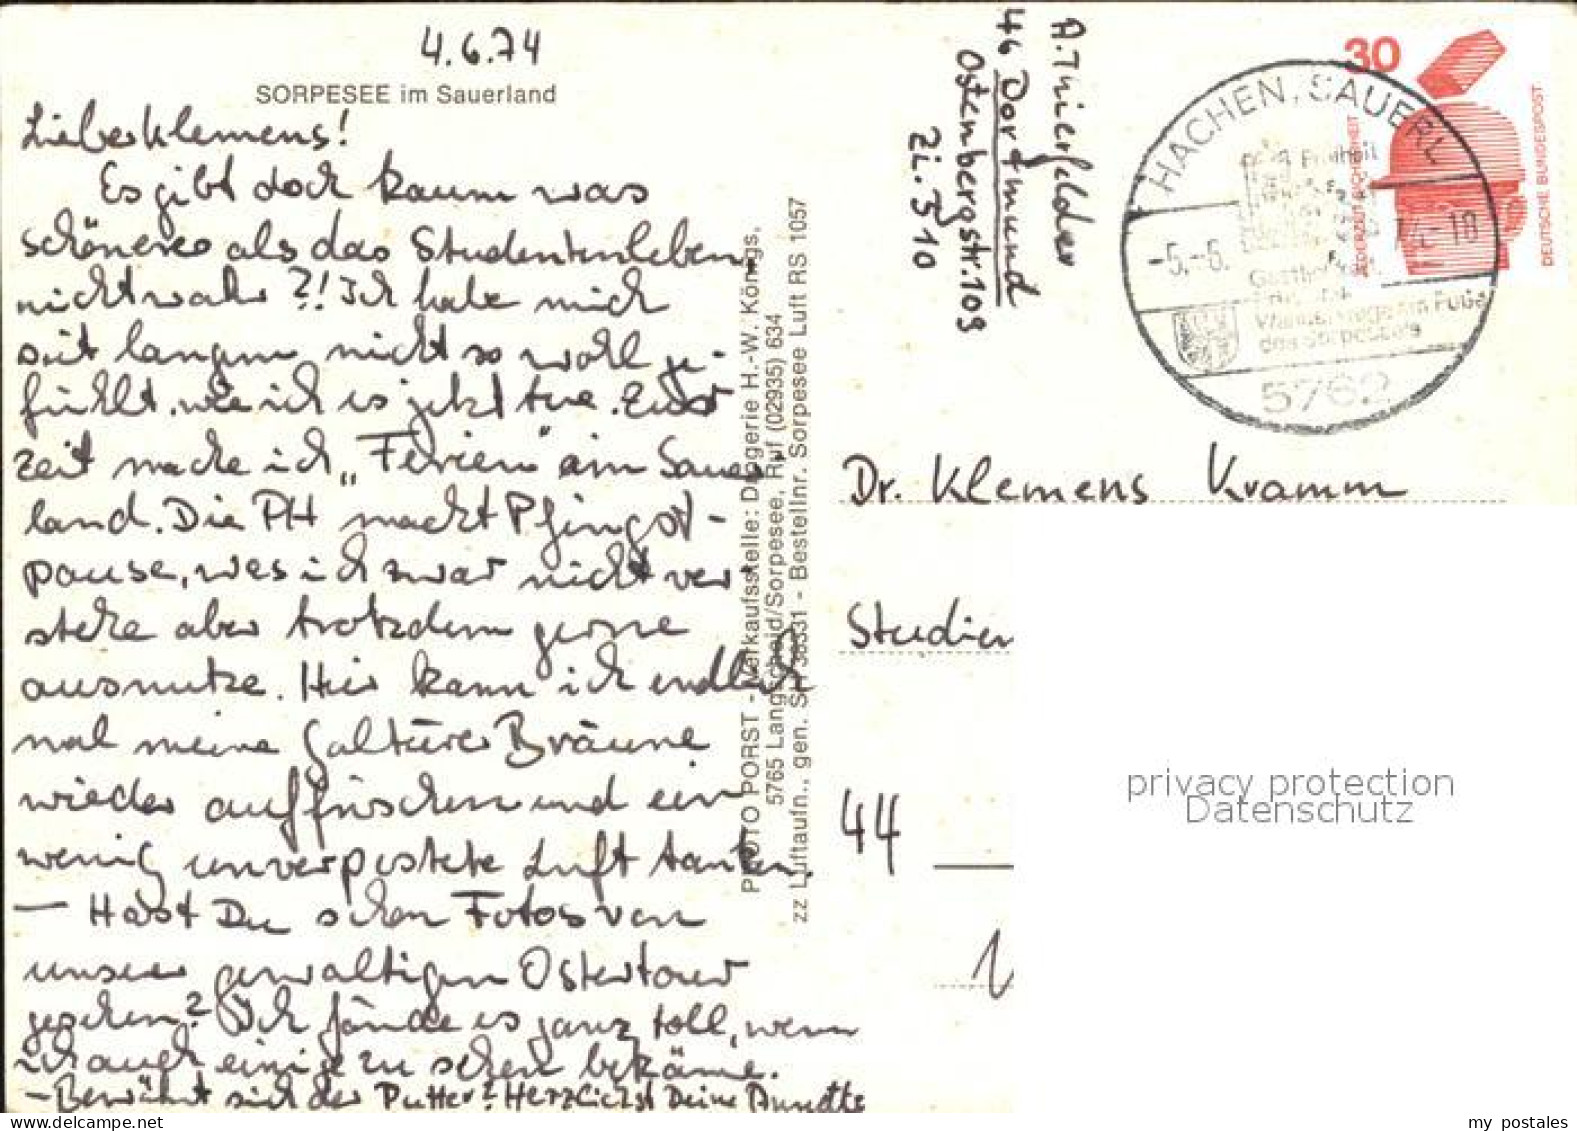 4.6.74
SORPESEE im Sauerland
Lieber Klemens!
Es gibt doch kaum was
schöneres als das Studentenleben,
nicht wahr ?! Ich habe mich
seit langem nicht so wohl ge-
fühlt, wie ich es jetzt tue. Zur
zeit mache ich „Ferien" am Sauer
land. Die PH macht Pfingst-
pause, was ich zwar nicht ver-
stehe aber trotzdem gerne
ausnutze. Hier kann ich endlich
mal meine Galtürer Bräune
wieder auffrischen und ein
wenig unverpestete Luft tanken.
— Hast Du schon Fotos von
unserer gewaltigen Ostertour
gesehen? Ich fände es ganz toll, wenn
ich auch einige zu sehen bekäme.
- Bewährt sich der Putter? Herzlichst Deine Annette
PHOTO PORST - Verkaufsstelle: Drogerie H.-W. Königs,
5765 Langscheid/Sorpesee, Ruf (02935) 634
zz Luftaufn., gen. SH 38331 - Bestellnr. Sorpesee Luft RS 1057
A. Thierfelder
46 Dortmund
Ostenbergstr. 109
Zi. 510
30
JEDERZEIT SICHERHEIT
DEUTSCHE BUNDESPOST
HACHEN, SAUERL
Freiheit
-5.-6. 74-18
des Sorpesees
5762
Dr. Klemens Kramm
Studien
44
privacy protection
Datenschutz
my postales